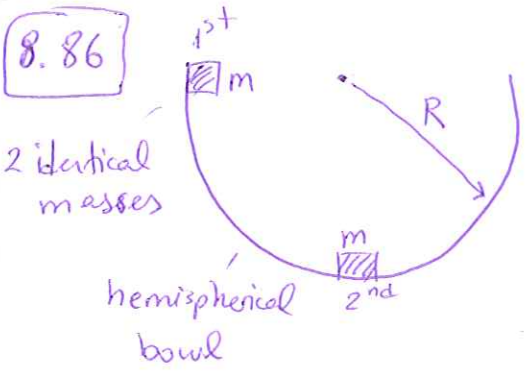 8.86
1st
m
2 identical
masses
R
m
2nd
hemispherical
bowl